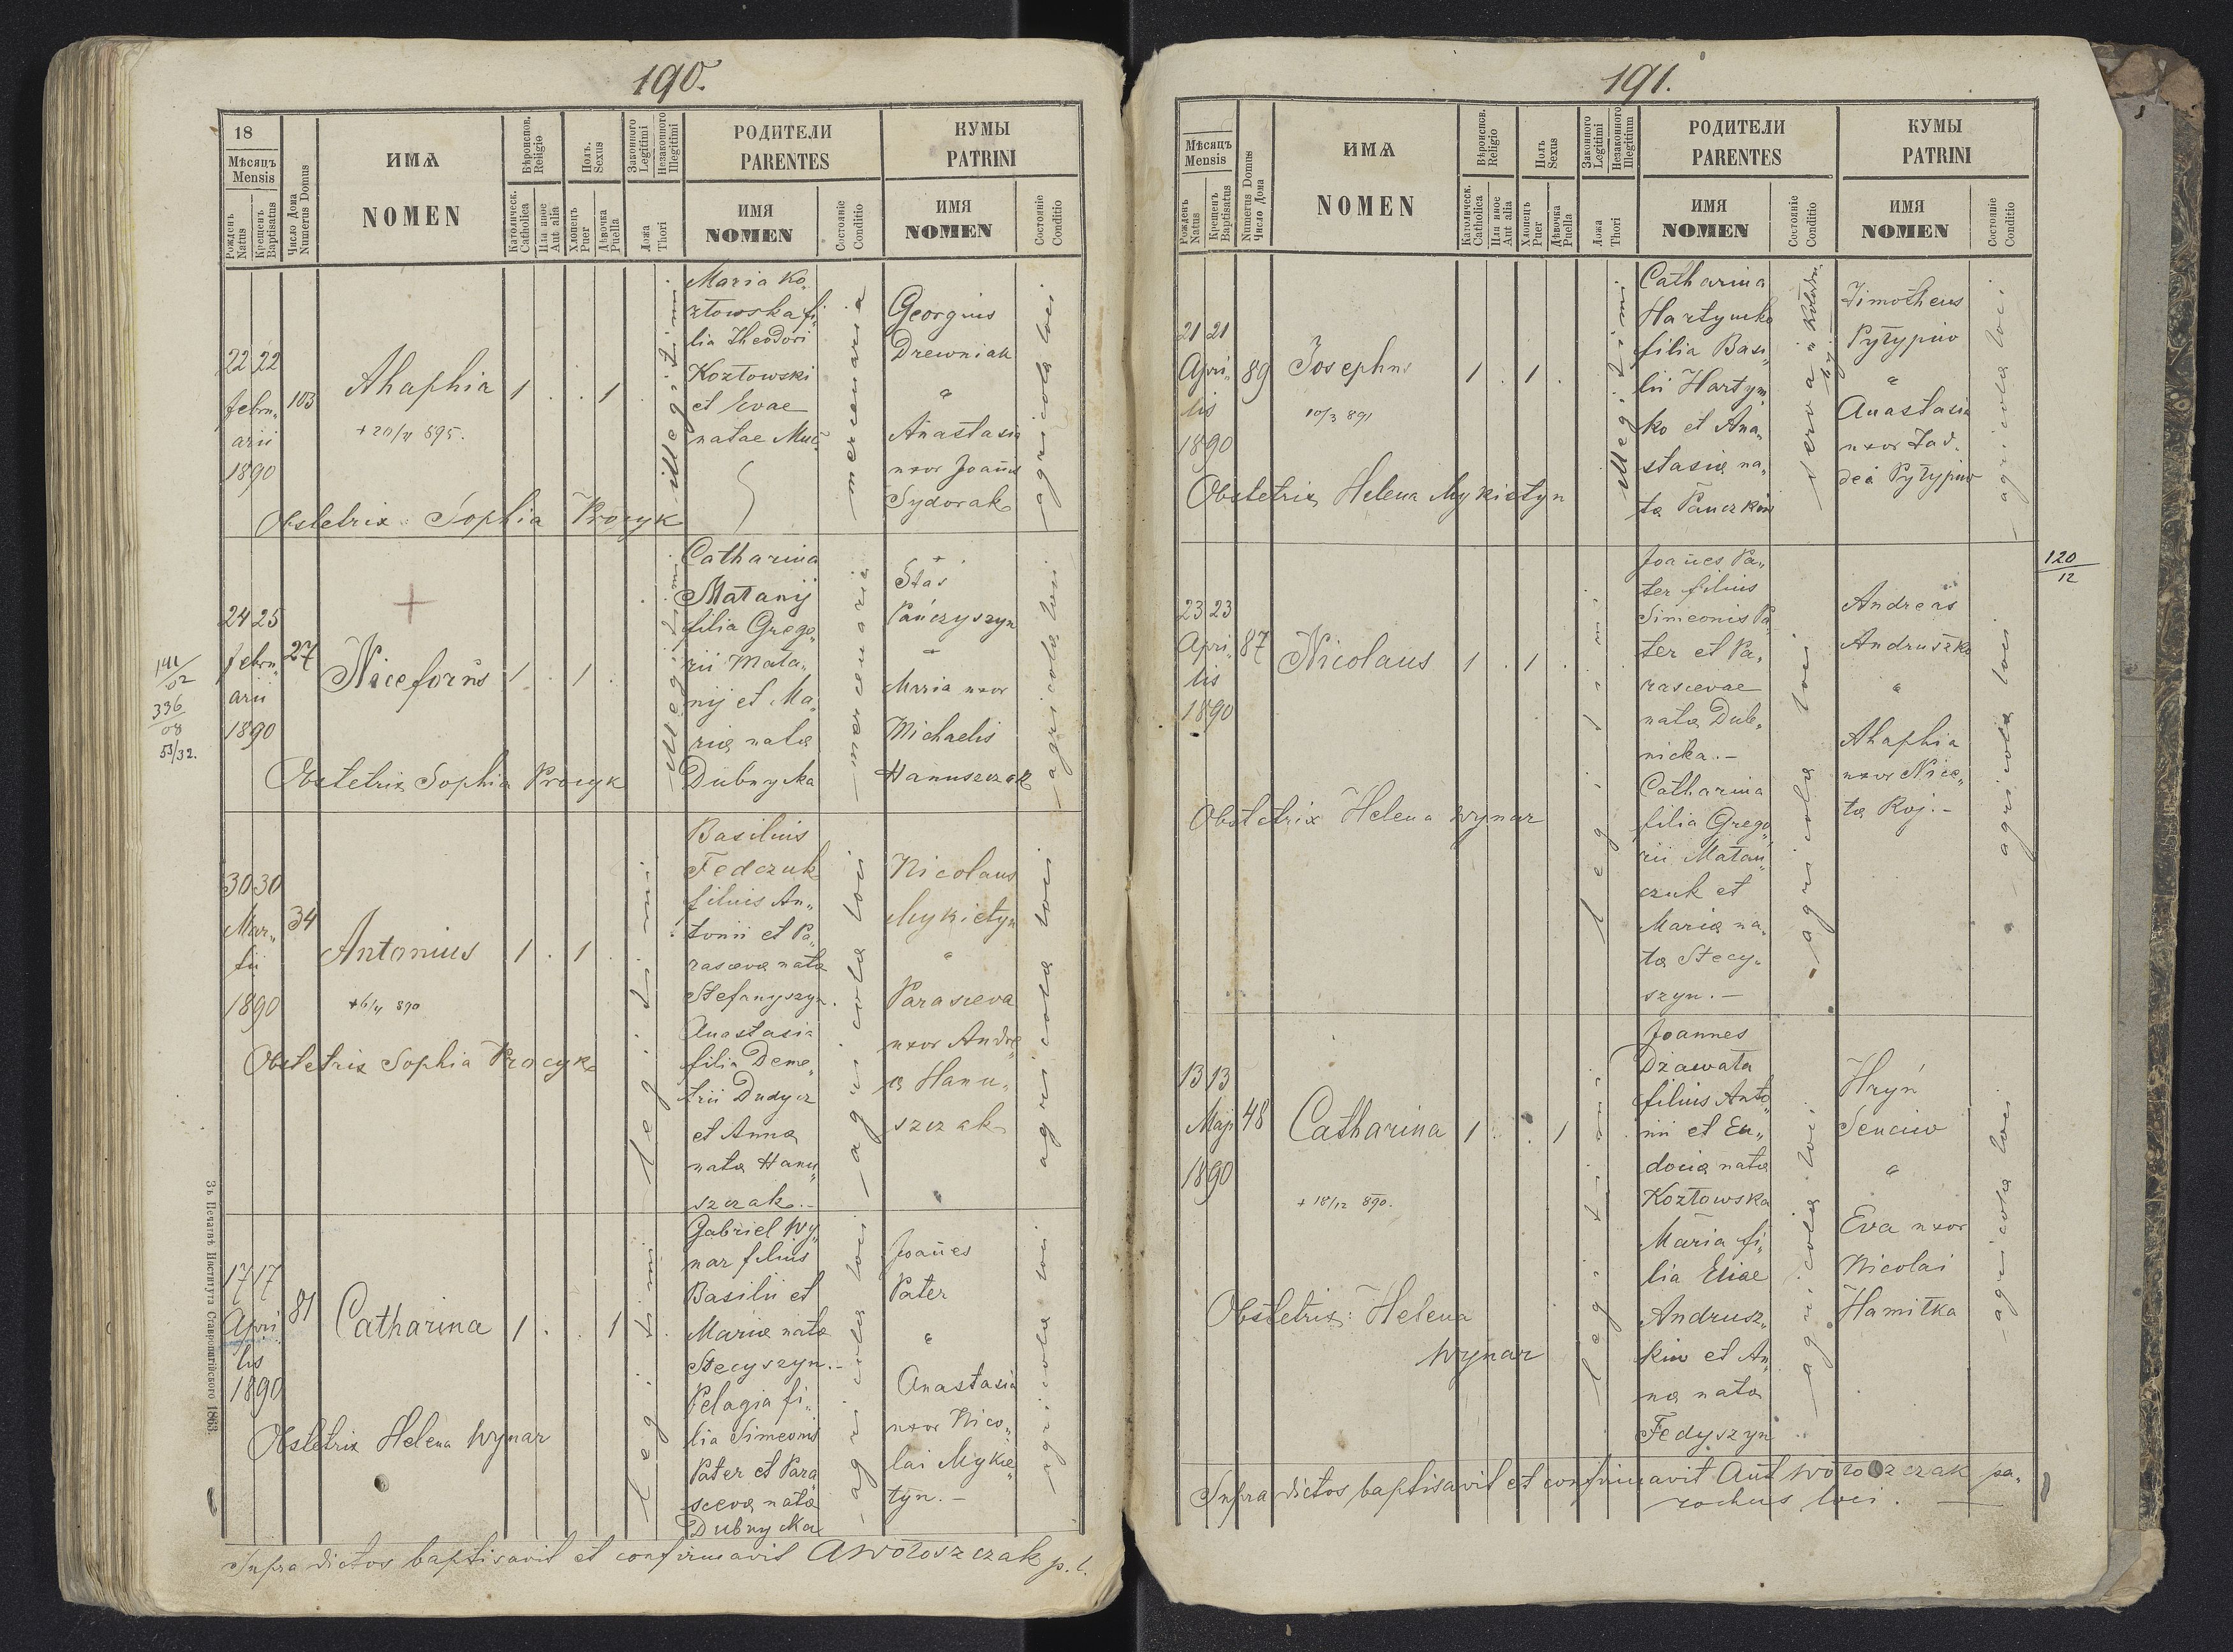 190.
18
Мѣсяцъ
Mensis
Рожденъ
Natus
Крещенъ
Baptisatus
Число Дома
Numerus Domus
ИМѦ
NOMEN
Вѣроиспов.
Religio
Католическ.
Catholica
Или иное
Aut alia
Полъ.
Sexus
Хлопецъ
Puer
Дѣвочка
Puella
Законного
Legitimi
Незаконного
Illegitimi
Ложа
Thori
РОДИТЕЛИ
PARENTES
ИМЯ
NOMEN
Состояніе
Conditio
КУМЫ
PATRINI
ИМЯ
NOMEN
Состояніе
Conditio
22 22
febru„
arii
1890
103
Ahaphia
1 . . 1
illegitimi
Maria Ko„
złowska fi„
lia Theodori
Kozłowski
et Evae
natae
mercenaria
Georgius
Drewniak
"
Anastasia
uxor Joañis
Sydorak
agricola loci
Obstetrix: Sophia Procyk
24 25
febru„
arii
1890
27
+
Niceforus
1 . 1 .
illegitimi
Catharina
Matanij
filia Grego„
rii Mata„
nij et Ma„
ria nata
Dubnycka
mercenaria
Staś
Pańczyszyn
Maria uxor
Michaelis
Hanuszczak
agricola loci
141/02
336/08
53/32.
Obstetrix Sophia Procyk
30 30
Mar„
tii
1890
34
Antonius
1 . 1 .
legitimi
Basilius
Fedczuk
filius An„
tonii et Pa„
rasceva nata
Stefanyszyn.
Anastasia
filia Deme„
trii Dudycz
et Anna
nata Hanu„
szczak.–
agricola loci
Nicolaus
Mykietyn
"
Parasceva
uxor Andre„
a Hanu„
szczak
agricola loci
Obstetrix Sophia Procyk
17 17
Apri
lis
1890
81
Catharina
1 . . 1
legitimi
Gabriel Wy„
nar filius
Basilii et
Maria nata
Stecyszyn.–
Pelagia fi„
lia Simeonis
Pater et Para
sceva nata
Dubnycka
agricola loci
Joañes
Pater
"
Anastasia
uxor Nico„
lai Mykie„
tyn.–
agricola loci
Obstetrix Helena Wynar
Infra dictos baptisavit et confirmavit AWołoszczak p. l.
Зъ Печатнѣ Института Ставропигійского 1863.
191.
Мѣсяцъ
Mensis
Рожденъ
Natus
Крещенъ
Baptisatus
Numerus Domus
Число Дома
ИМѦ
NOMEN
Вѣроиспов.
Religio
Католическ.
Catholica
Или иное
Aut alia
Полъ
Sexus
Хлопецъ
Puer
Дѣвочка
Puella
Законного
Legitimi
Незаконного
Illegitimi
Ложа
Thori
РОДИТЕЛИ
PARENTES
ИМЯ
NOMEN
Состояніе
Conditio
КУМЫ
PATRINI
ИМЯ
NOMEN
Состояніе
Conditio
21 21
Apri„
lis
1890
89
Josephus
10/3 891
1 . 1 .
illegitimi
Catharina
Hartymko
filia Basi„
lii Hartym„
ko et Ana„
stasia na„
ta
serva
Timotheus
Pyłypiw
"
Anastasia
uxor Tad„
dea Pyłypiw
agricola loci
Obstetrix Helena Mykietyn
23 23
Apri„
lis
1890
87
Nicolaus
1 . 1 .
legitimi
Joañes Pa„
ter filius
Simeonis Pa„
ter et Pa„
rascevae
nata Dub„
nicka.–
Catharina
filia Grego„
rii Matań
czuk et
Maria na„
ta Stecy„
szyn.–
agricola loci
Andreas
Andruszko
"
Ahaphia
uxor Nice„
ta Roj.–
agricola loci
120/12
Obstetrix Helena Wynar
13 13
Maji
1890
48
Catharina
+ 18/12 890.
1 . . 1
legitimi
Joannes
Dżawała
filius Anto„
nii et Eu„
docia nata
Kozłowska
Maria fi„
lia Eliae
Andrusz„
kiw et An„
na nata
Fedyszyn
agricola loci
Hryń
Senciw
"
Eva uxor
Nicolai
Hamiłka
agricola loci
Obstetrix: Helena
Wynar
Infra dictos baptisavit et confirmavit Ant Wołoszczak pa„
rochus loci.